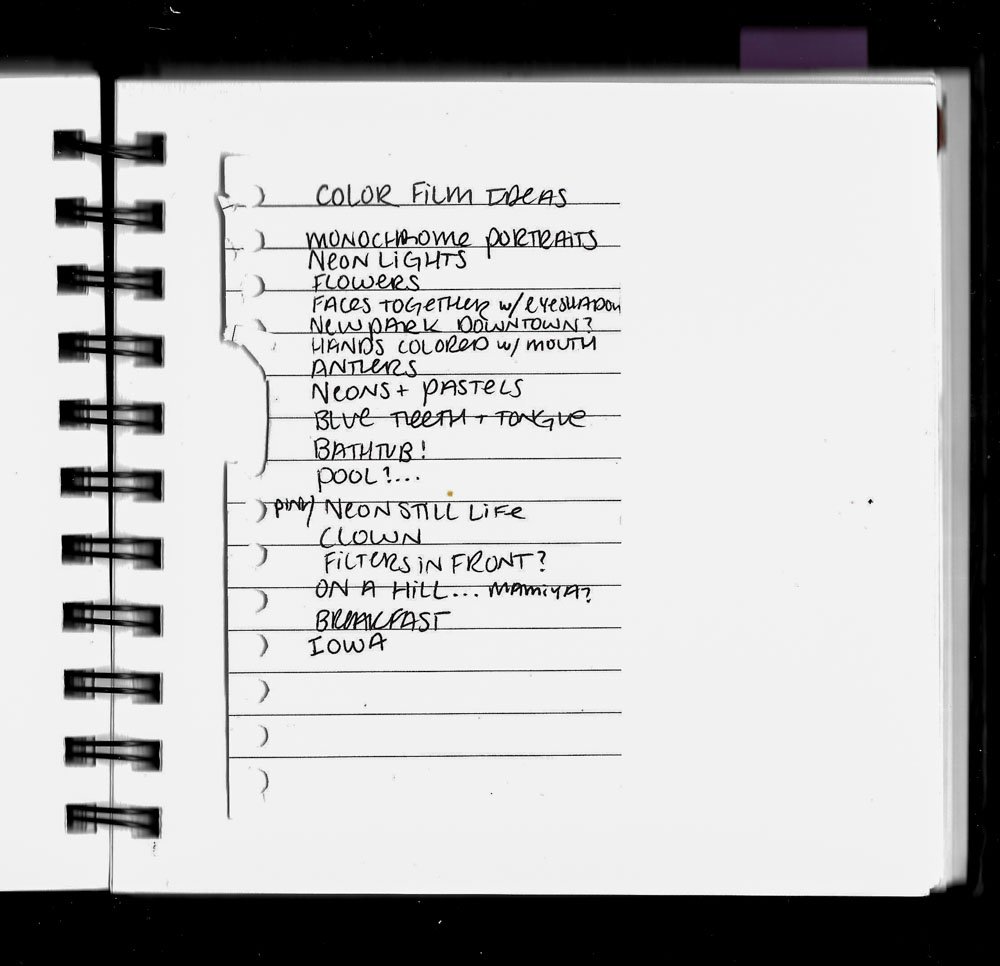 COLOR FILM IDEAS
MONOCHROME PORTRAITS
NEON LIGHTS
FLOWERS
FACES TOGETHER w/ EYESHADOW
NEW PARK DOWNTOWN?
HANDS COLORED w/ MOUTH
ANTLERS
NEONS + PASTELS
BLUE TEETH + TONGUE
BATHTUB!
POOL?...
PINK/ NEON STILL LIFE
CLOWN
FILTERS IN FRONT?
ON A HILL... MAMIYA?
BREAKFAST
IOWA